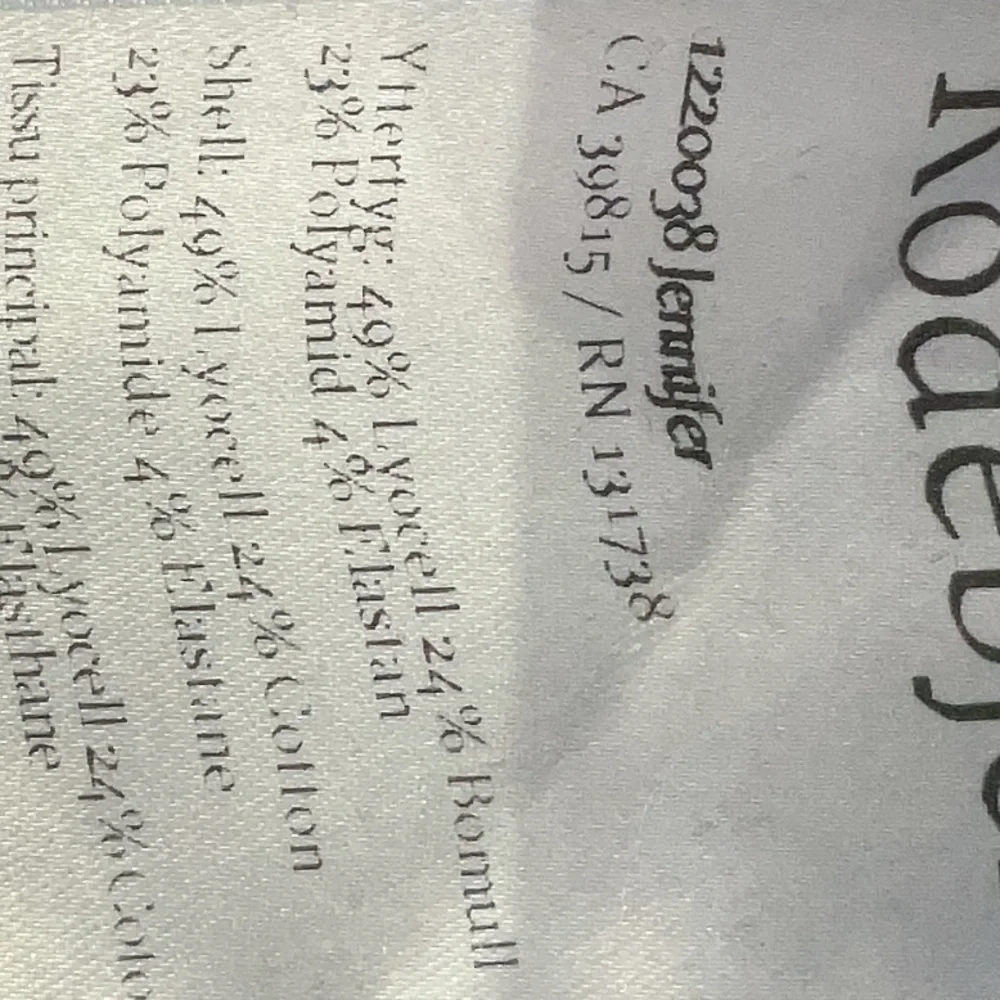 Rodebje
122038 Jennifer
CA 39815 / RN 131738
Yttertyg: 49% Lyocell 24% Bomull
23% Polyamid 4% Elastan
Shell: 49% Lyocell 24% Cotton
23% Polyamide 4% Elastane
Tissu principal: 49% Lyocell 24% Coto
4% Elasthane